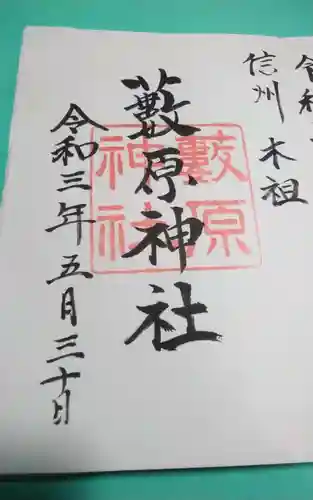 信州 木祖
藪原神社
藪原
神社
令和三年五月三十日